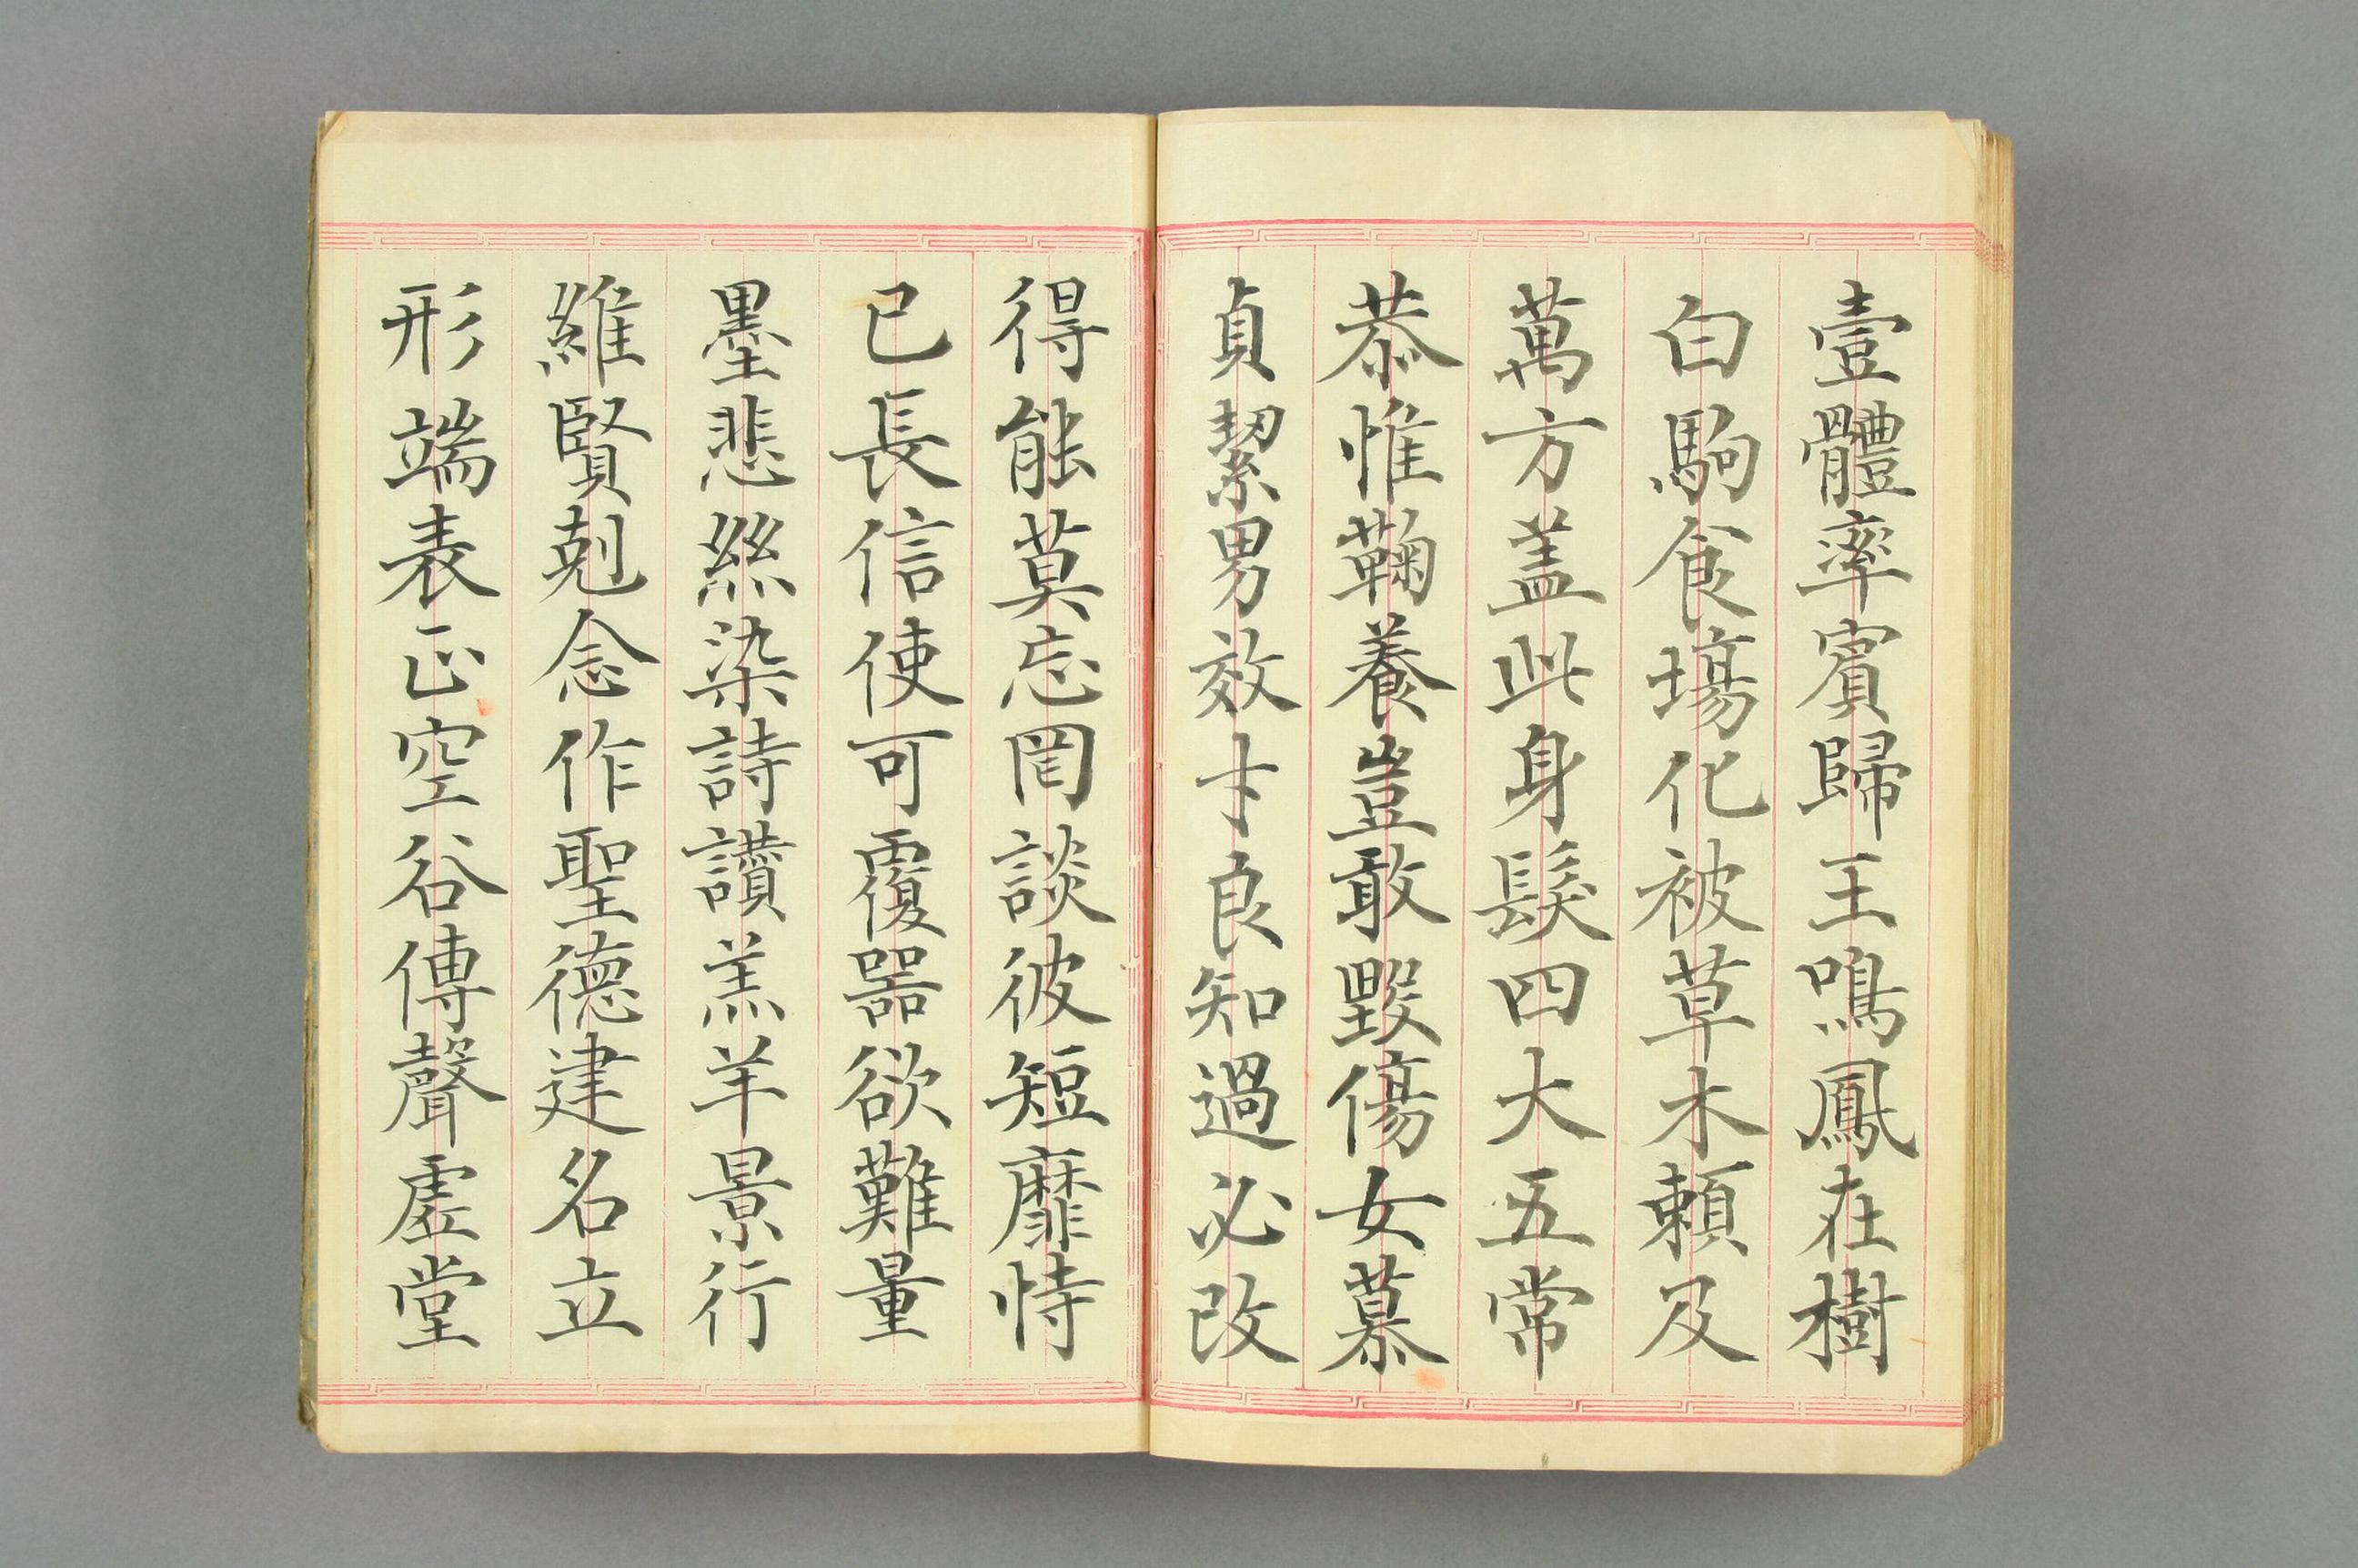 壹體率賓歸王鳴鳳在樹
白駒食場化被草木賴及
萬方盖此身髮四大五常
恭惟鞠養豈敢毀傷女慕
貞絜男效才良知過必改
得能莫忘罔談彼短靡恃
已長信使可覆器欲難量
墨悲絲染詩讚羔羊景行
維賢剋念作聖德建名立
形端表正空谷傳聲虛堂